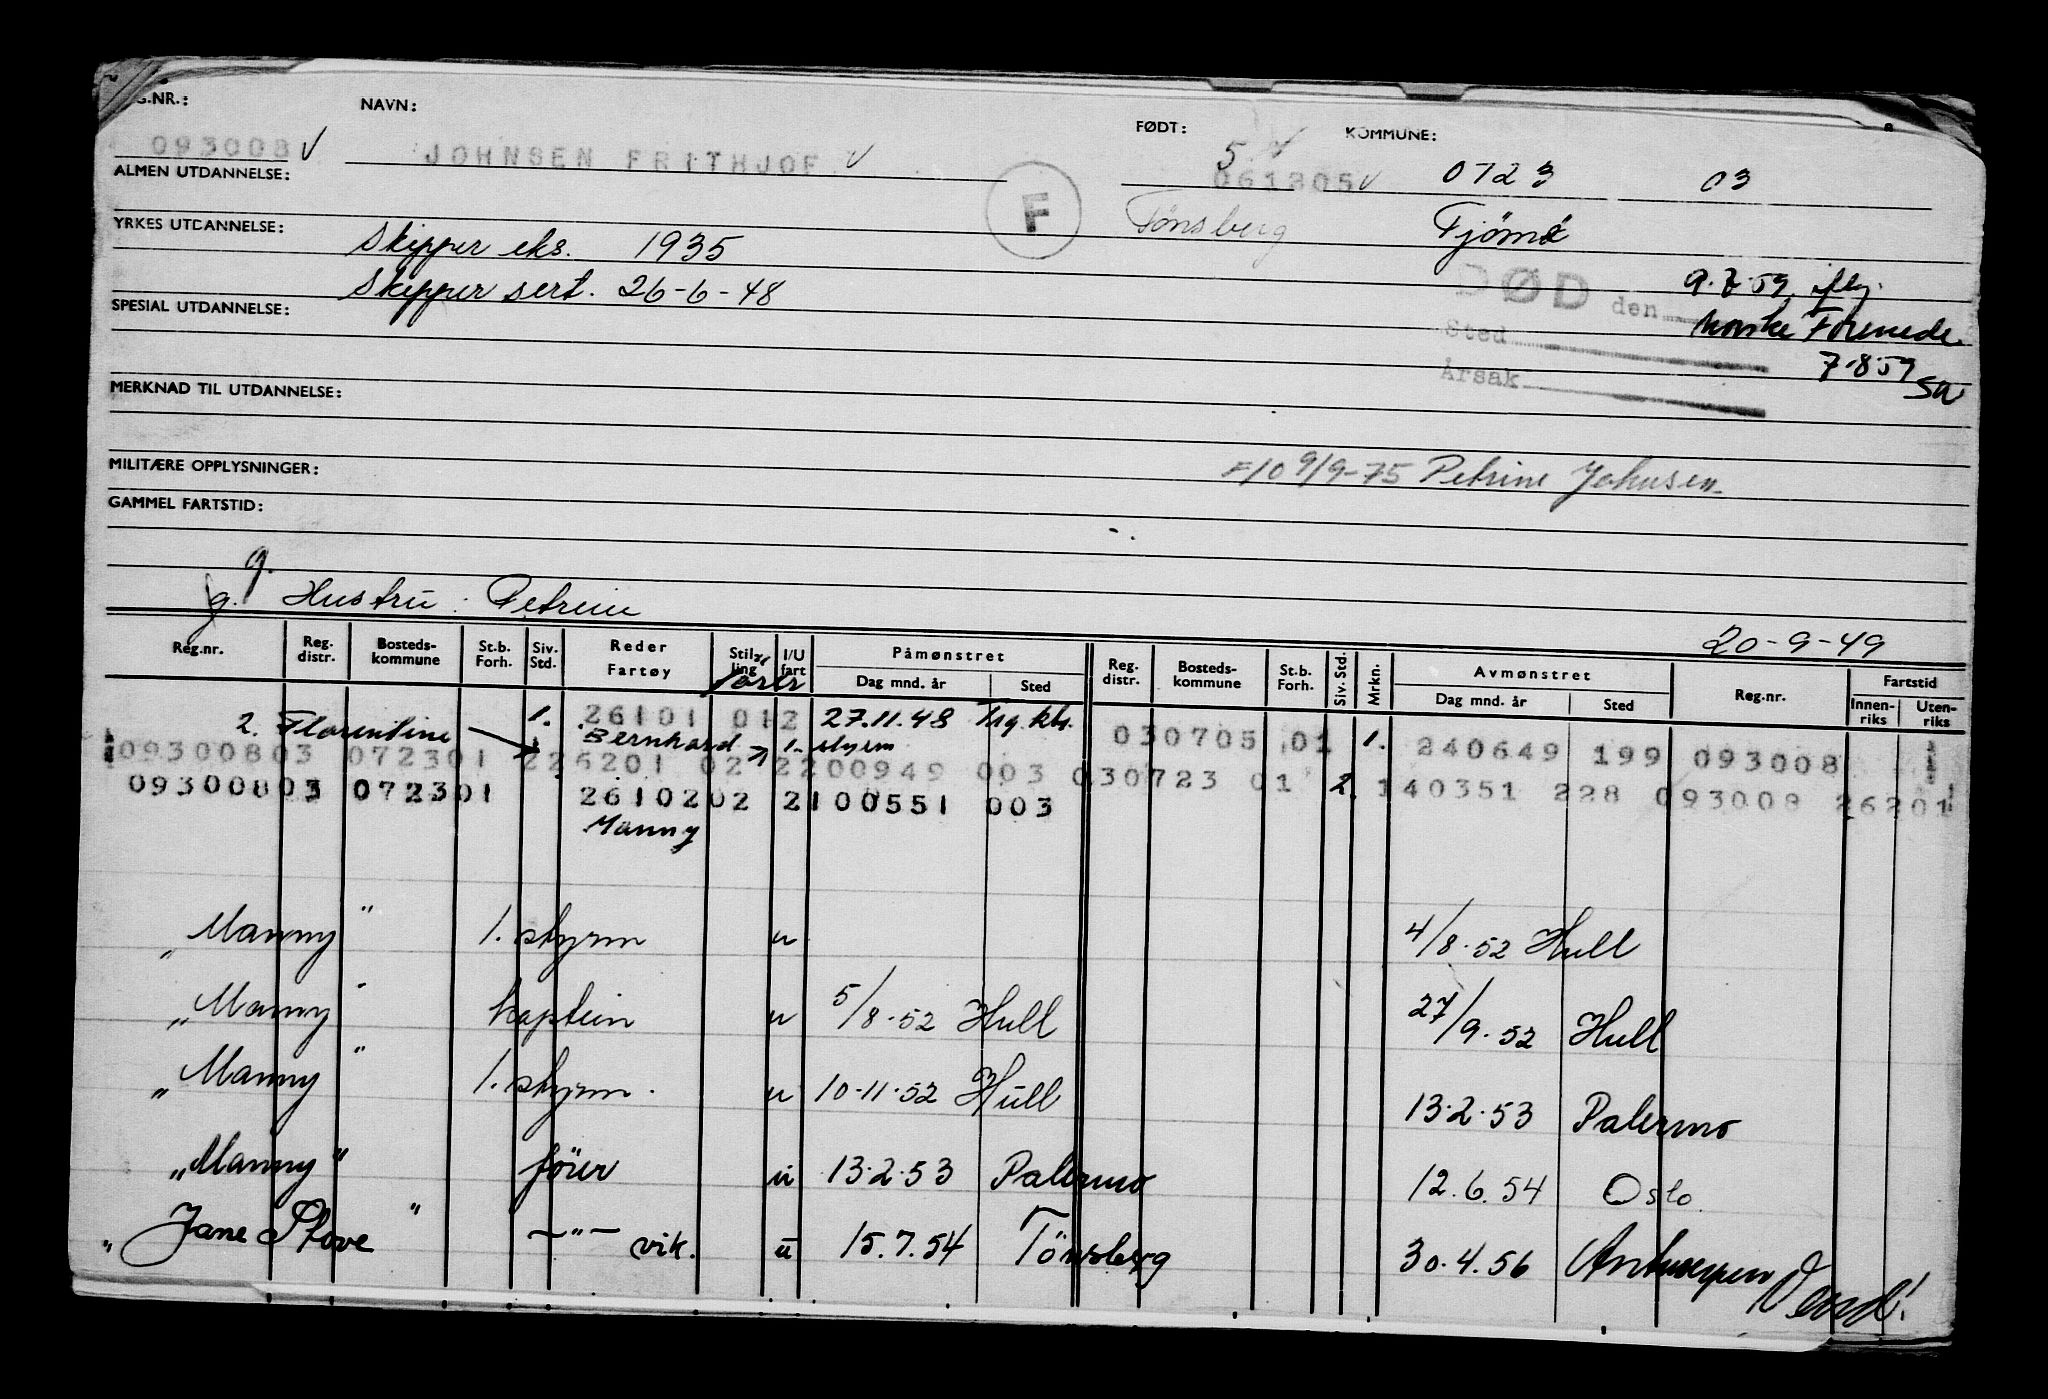 NAVN:
FØDT:
KOMMUNE:
093008 √ JOHNSEN FRITHJOF √ 5 061205 √ 0723 03
ALMEN UTDANNELSE:
F
Tønsberg Tjöme
YRKES UTDANNELSE: Skipper eks. 1935
Skipper sert. 26-6-48
DØD den 9.7.59 iflg.
Sted norske Forenede
Årsak 7.8.59 SA
SPESIAL UTDANNELSE:
MERKNAD TIL UTDANNELSE:
MILITÆRE OPPLYSNINGER:
F/O 9/9-75 Petrine Johnsen
GAMMEL FARTSTID:
g.
g. Hustru: Petrine
20-9-49
Reg.nr. Reg. distr. Bosteds-kommune St.b. Forh. Siv. Std. Reder Fartøy Stil-ling I/U fart Påmønstret Dag mnd. år Sted Reg. distr. Bosteds-kommune St.b. Forh. Siv. Std. Mrkn. Avmønstret Dag mnd. år Sted Reg.nr. Fartstid Innen-riks Uten-riks
1. 26101 012 27.11.48 Tsg. kbr. 030705 01 1. 240649 199 093008
2. Florentine Bernhard 1. styrm
09300803 072301 226201 02 2200949 003 030723 01 2. 140351 228 093008 26201
09300803 072301 2610202 2100551 003
Manny
"Manny" 1. styrm u 4/8.52 Hull
"Manny" kaptein u 5/8.52 Hull 27/9.52 Hull
"Manny" 1. styrm. u 10.11.52 Hull 13.2.53 Palermo
"Manny" förer u 13.2.53 Palermo 12.6.54 Oslo.
"Jane Stove" —"— vik. u 15.7.54 Tönsberg 30.4.56 Antwerpen
Vend!